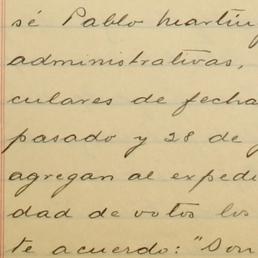 sé Pablo Martín
administrativas,
culares de fecha
pasado y 28 de
agregan al expedi
dad de votos los
te acuerdo: "Don